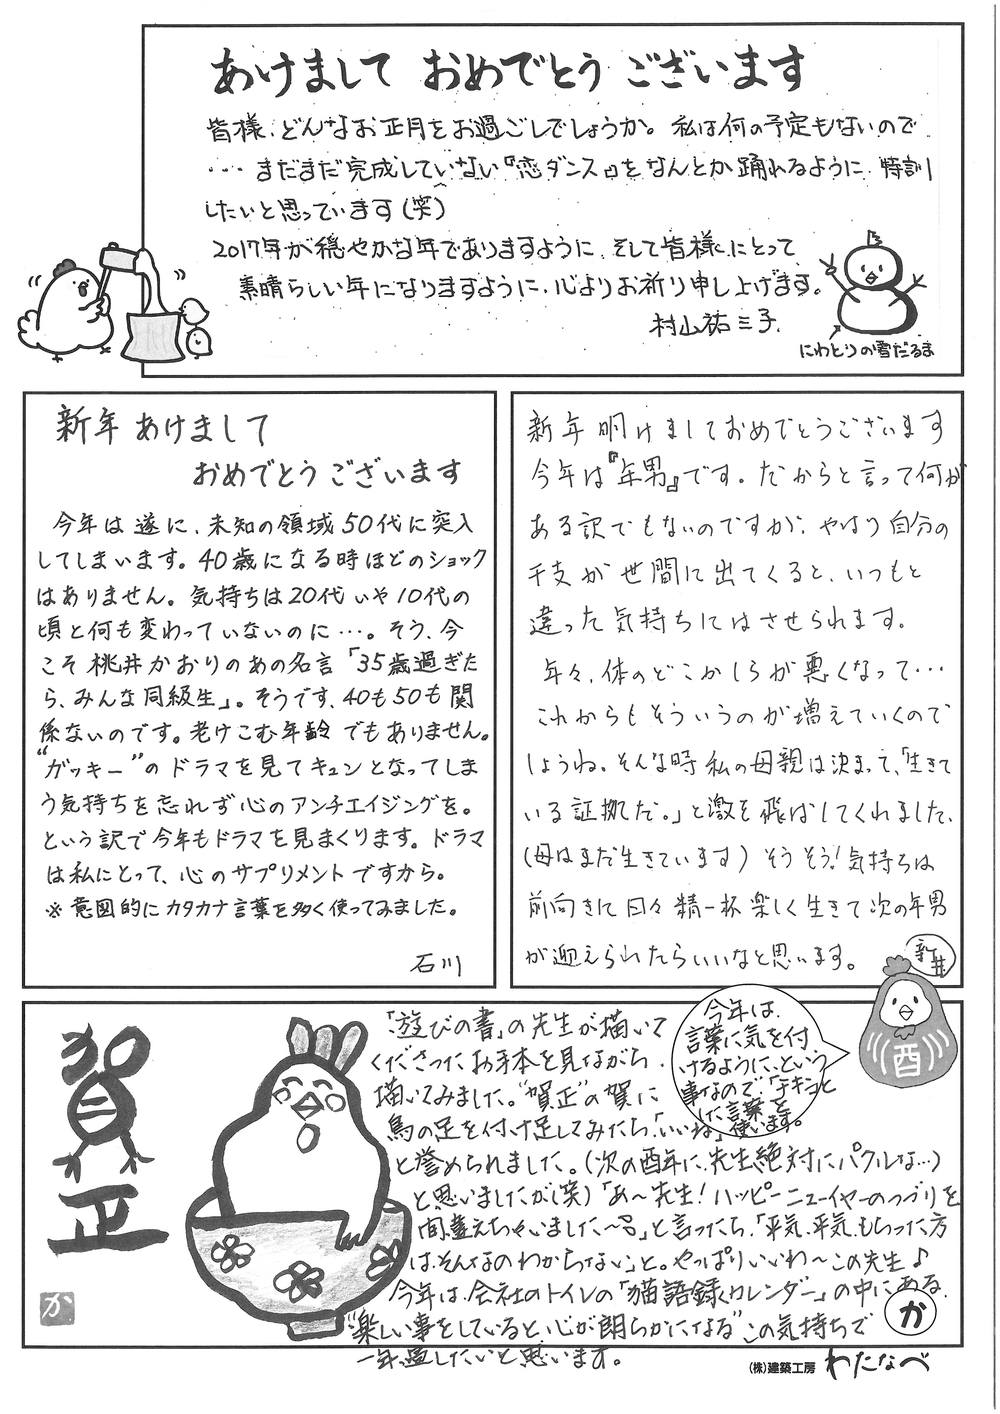 あけまして おめでとう ございます
皆様、どんなお正月をお過ごしでしょうか。私は何の予定もないので
・・・まだまだ完成していない『恋ダンス』をなんとか踊れるように、特訓
したいと思っています(笑)
2017年が穏やかな年でありますように、そして皆様にとって
素晴らしい年になりますように、心よりお祈り申し上げます。
村山祐三子
にわとりの雪だるま
新年 あけまして
おめでとう ございます
今年は遂に、未知の領域50代に突入
してしまいます。40歳になる時ほどのショック
はありません。気持ちは20代いや10代の
頃と何も変わっていないのに・・・。そう、今
こそ桃井かおりのあの名言「35歳過ぎた
ら、みんな同級生」。そうです、40も50も関
係ないのです。老けこむ年齢でもありません。
“ガッキー”のドラマを見てキュンとなってしま
う気持ちを忘れず心のアンチエイジングを。
という訳で今年もドラマを見まくります。ドラマ
は私にとって、心のサプリメントですから。
※意図的にカタカナ言葉を多く使ってみました。
石川
新年明けましておめでとうございます
今年は『年男』です。だからと言って何が
ある訳でもないのですが、やはり自分の
干支が世間に出てくると、いつもと
違った気持ちにはさせられます。
年々、体のどこかしらが悪くなって・・・
これからもそういうのが増えていくので
しょうね。そんな時私の母親は決まって、「生きて
いる証拠だ。」と激を飛ばしてくれました、
(母はまだ生きています)そうそう!気持ちは
前向きに日々精一杯楽しく生きて次の年男
が迎えられたらいいなと思います。
新井
酉
今年は、
言葉に気を付
けるように、という
事なので、「テキンと
した言葉」を
使います。
賀正
か
「遊びの書」の先生が描いて
くださったお手本を見ながら、
描いてみました。“賀正”の賀に
鳥の足を付け足してみたら、「いいね」
と誉められました。(次の酉年に、先生絶対にパクルな…)
と思いましたが(笑)「あ～先生!ハッピーニューイヤーのつづりを
間違えちゃいました～。」と言ったら、「平気、平気、もらった方
は、そんなのわからない」と。やっぱりいいわ～この先生♪
今年は、会社のトイレの「猫語録カレンダー」の中にある、
“楽しい事をしていると、心が朗らかになる”この気持ちで
一年過したいと思います。
か
(株)建築工房 わたなべ